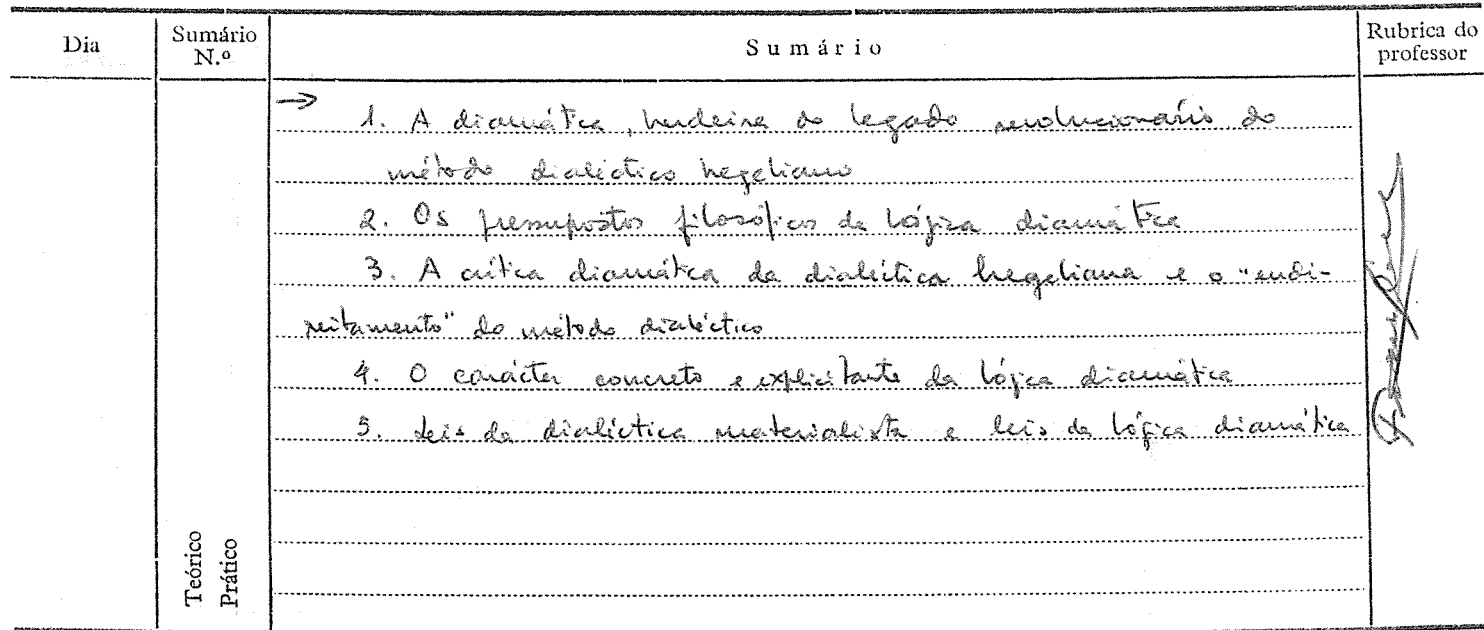 Dia
Sumário N.º
Sumário
Rubrica do professor
→ 1. A diamática, herdeira do legado revolucionário do
método dialéctico hegeliano
2. Os pressupostos filosóficos da lógica diamática
3. A crítica diamática da dialéctica hegeliana e o "endi-
reitamento" do método dialéctico
4. O carácter concreto e explicitante da lógica diamática
5. Leis da dialéctica materialista e leis da lógica diamática
Teórico
Prático